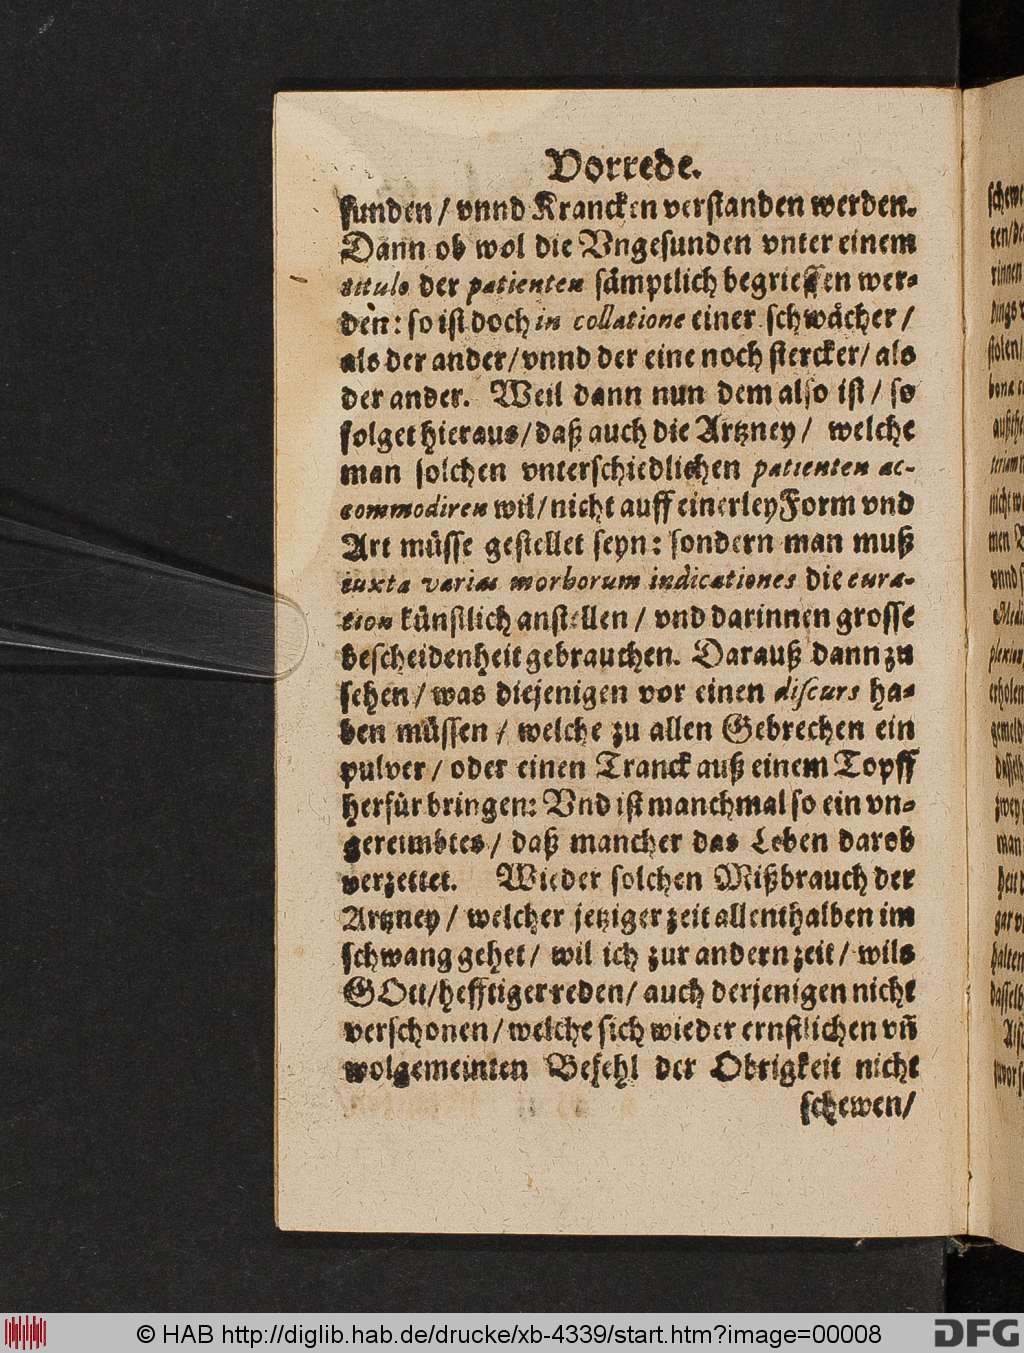 Vorrede.
sunden / vnnd Krancken verstanden werden.
Dann ob wol die Vngesunden vnter einem
titulo der patienten sämptlich begrieffen wer-
den: so ist doch in collatione einer schwächer /
als der ander / vnnd der eine noch stercker / als
der ander. Weil dann nun dem also ist / so
folget hieraus / daß auch die Artzney / welche
man solchen vnterschiedlichen patienten ac-
commodiren wil / nicht auff einerley Form vnd
Art müsse gestellet seyn: sondern man muß
iuxta varias morborum indicationes die cura-
tion künstlich anstellen / vnd darinnen grosse
bescheidenheit gebrauchen. Darauß dann zu
sehen / was diejenigen vor einen discurs ha-
ben müssen / welche zu allen Gebrechen ein
pulver / oder einen Tranck auß einem Topff
herfür bringen: Vnd ist manchmal so ein vn-
gereimbtes / daß mancher das Leben darob
verzettet. Wieder solchen Mißbrauch der
Artzney / welcher jetziger zeit allenthalben im
schwang gehet / wil ich zur andern zeit / wils
GOtt / hefftiger reden / auch derjenigen nicht
verschonen / welche sich wieder ernstlichen vñ
wolgemeinten Befehl der Obrigkeit nicht
schewen /
© HAB http://diglib.hab.de/drucke/xb-4339/start.htm?image=00008
DFG